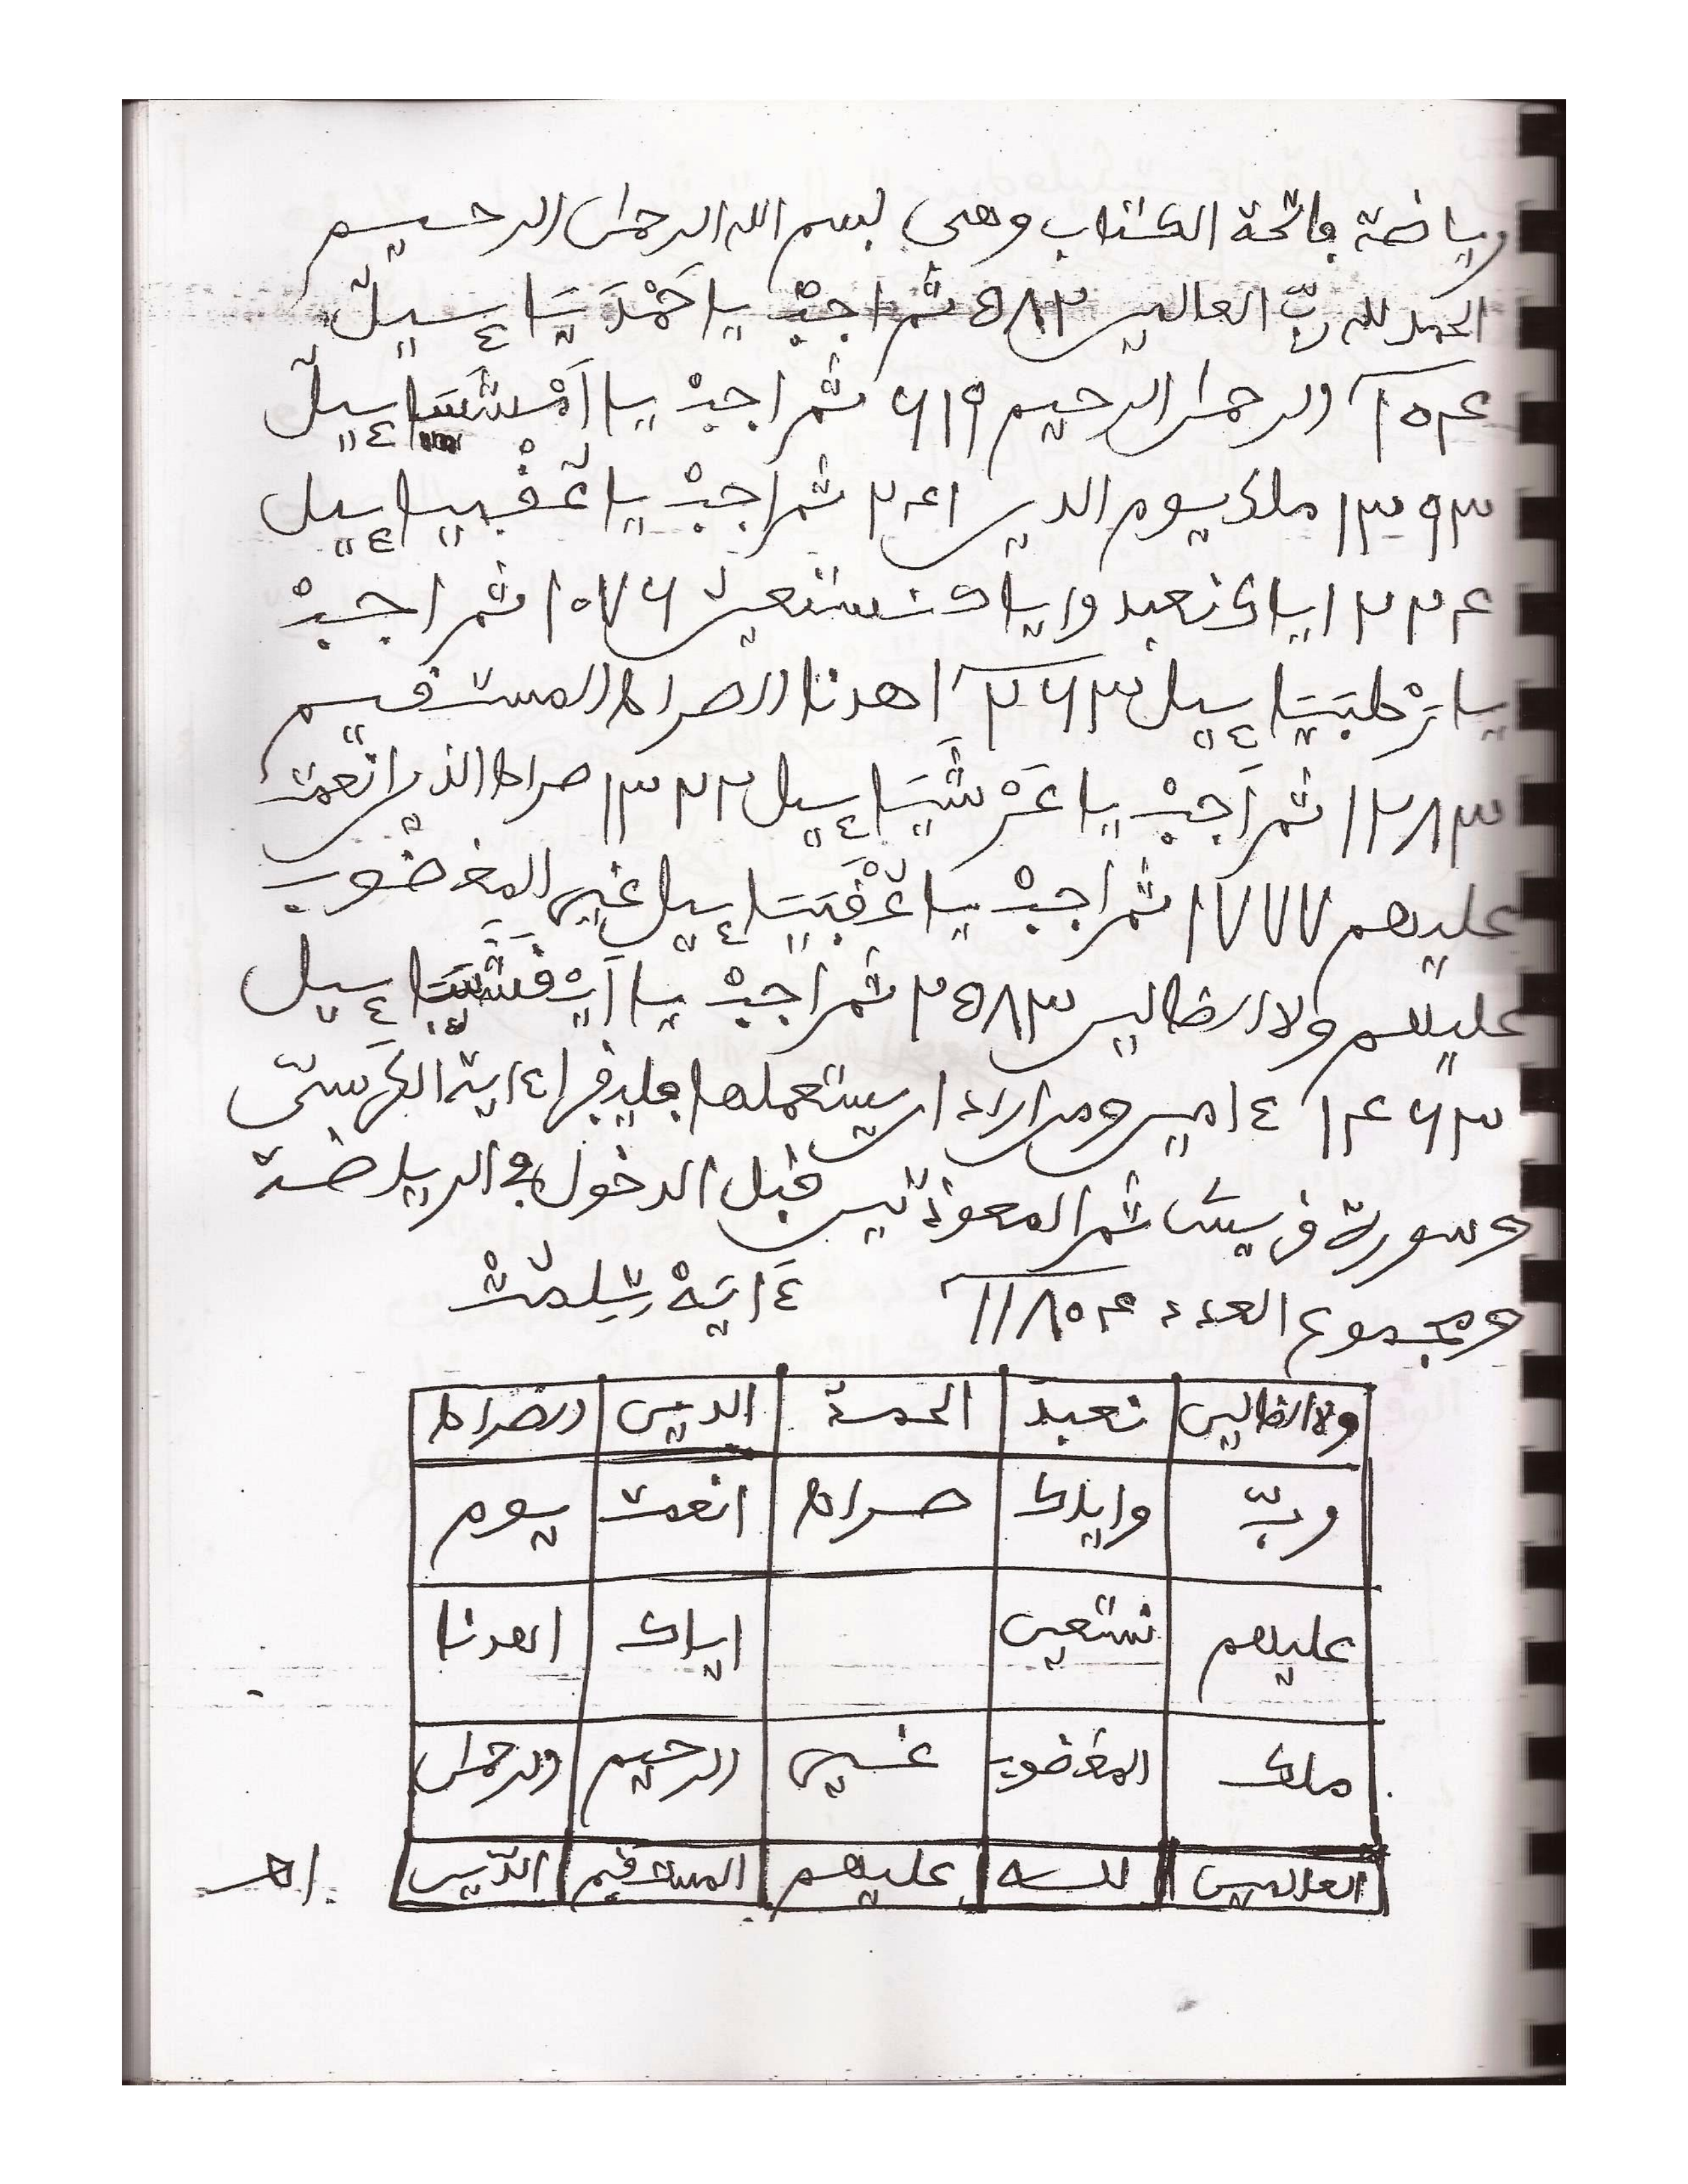 رياضة فاتحة الكتاب وهى بسم الله الرحمن الرحيم
الحمد لله ربّ العالمين ٥٨٢ ثم اجبْ يا حَمْدَيَاءِيلُ
٢٥٤ والرحمن الرحيم ٦١٩ ثم اجبْ يا
١٣٩٣ ملك يوم الدين ٢٤١ ثم اجبْ يا
٢٢٤ اياك نعبد واياك نستعين ١٠٧٦ ثم اجبْ
يا ٢٦٣ اهدنا الصراط المستقيم
١٢٨٣ ثم اَجبْ يا عَرْشَيَاءِيل ١٣٢٢ صراط الذين انعمت
عليهم ١٧٧٧ ثم اجبْ يا غير المغضوب
عليهم ولا الضالين ٢٥٨٣ ثم اجبْ يا
١٤٦٣ ءامين ومن اراد ان يستعملها فليقرا ءاية الكرسيّ
وسورة قريش ثم المعوذتين قبل الدخول في الرياضة
ومجموع العدد ١١٨٥٤ ءايَةْ
ولا الضالين نعبد الحمد الدين الصراط
وربّ واياك صراط انعمت يوم
عليهم نستعين اياك اهدنا
ملك المغضوب غير الرحيم والرحمن
العالمين لله عليهم المستقيم الذين
اهـ